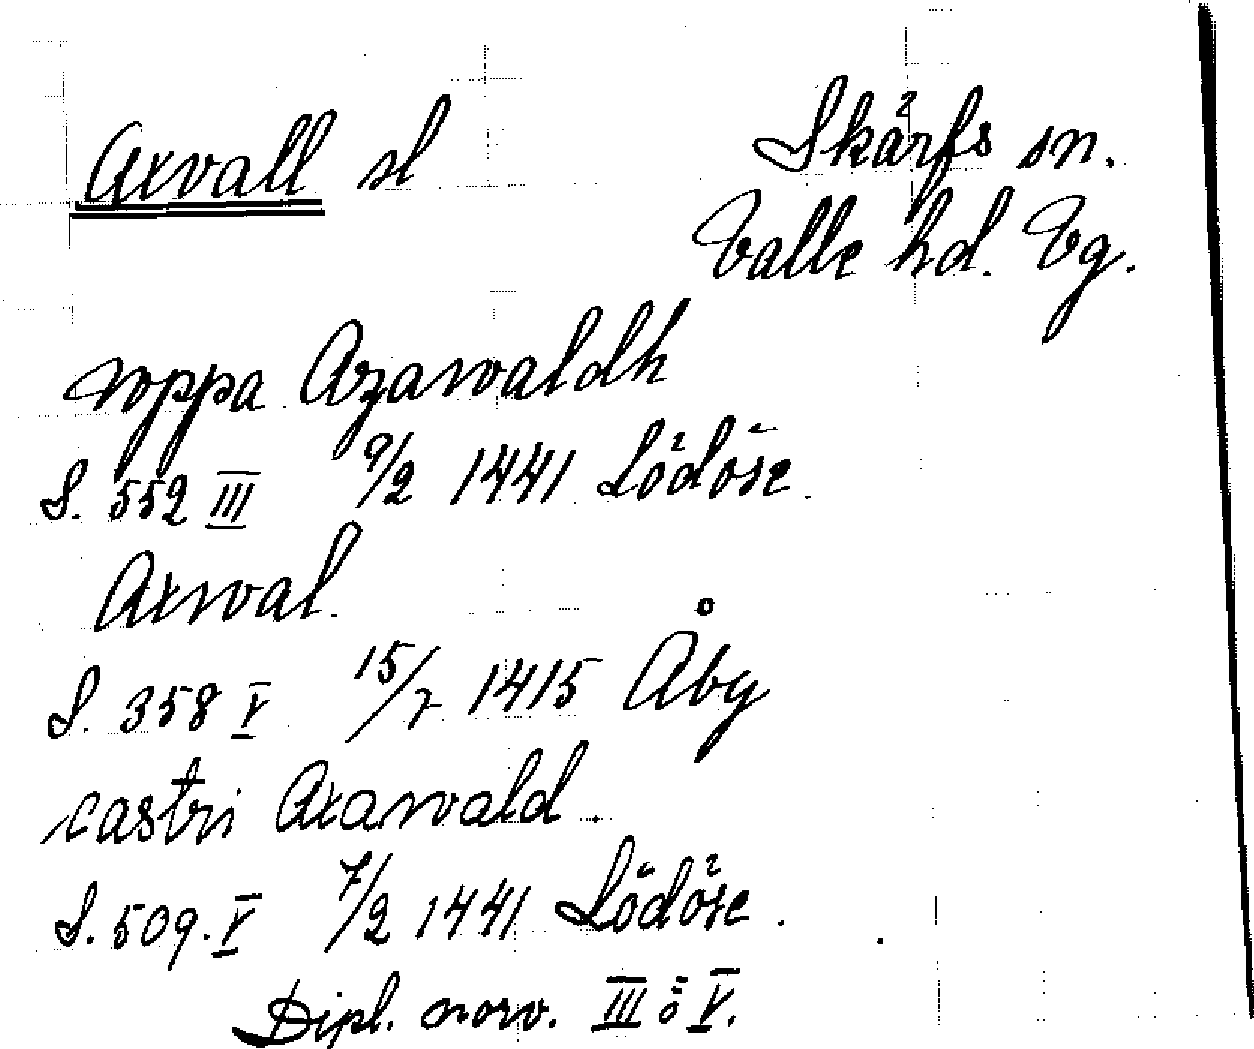 Axvall sl
Skärfs sn.
Valle hd. Vg.
uppa Azawaldh
S. 552 III 9/2 1441 Lödöse.
Axwal.
S. 358 V 15/7 1415 Åby
castri Axawald
S. 509. V 7/2 1441 Lödöse.
Dipl. norv. III o V.